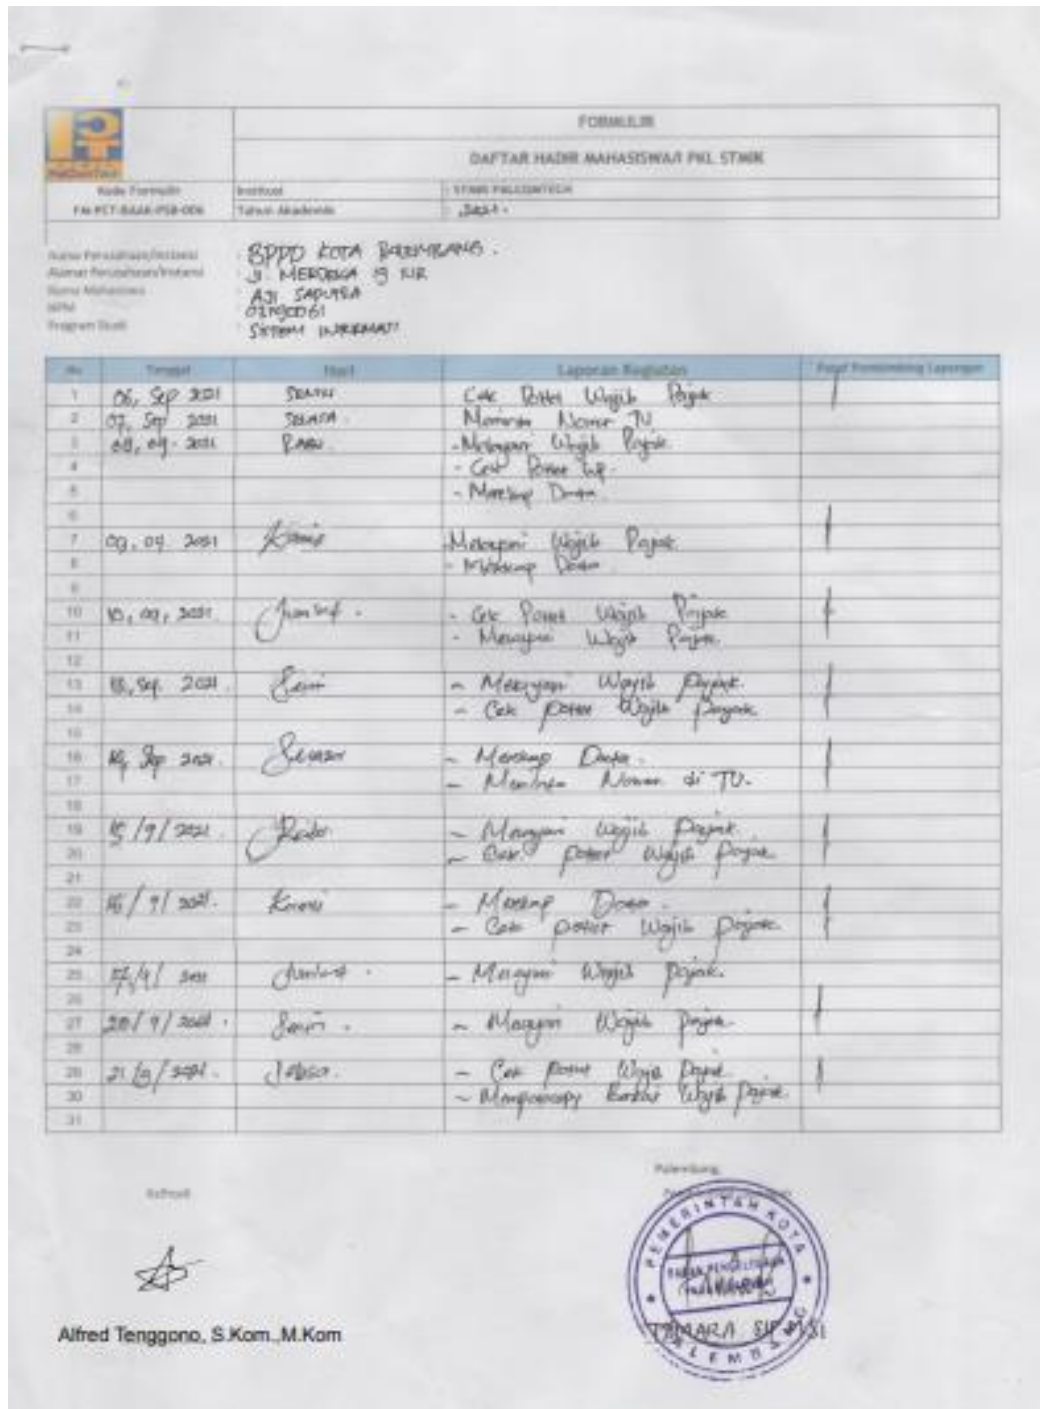 FORMULIR
DAFTAR HADIR MAHASISWA/I PKL STMIK
PalComTech
Kode Formulir Institusi : STMIK PALCOMTECH
FM-PCT-BAAK-PSB-006 Tahun Akademik : 2021.
Nama Perusahaan/Instansi : BPPD KOTA PALEMBANG.
Alamat Perusahaan/Instansi : Jl. MERDEKA
Nama Mahasiswa : AJI SAPUTRA
NPM
Program Studi : SISTEM INFORMASI
No Tanggal Hari Laporan Kegiatan Paraf Pembimbing Lapangan
1 06, Sep 2021 SENIN Cek Potret Wajib Pajak
2 07, Sep 2021 SELASA. Meminta Nomor TU
3 08, 09. 2021 RABU. - Melayani Wajib Pajak
4 - Cek Potret WP.
5 - Merekap Data.
6
7 09, 09. 2021 Kamis Melayani Wajib Pajak.
8 - Merekap Data
9
10 10, 09, 2021 Jum'at. - Cek Potret Wajib Pajak
11 - Melayani Wajib Pajak.
12
13 Sep. 2021. Senin - Melayani Wajib Pajak.
14 - Cek potret Wajib Pajak
15
16 Sep 2021. Selasa - Merekap Data.
17 - Meminta Nomor di TU.
18
19 15/9/2021. Rabu - Melayani Wajib Pajak.
20 - Cek potret Wajib Pajak
21
22 16/9/2021. Kamis - Merekap Data.
23 - Cek potret Wajib Pajak.
24
25 17/9/2021 Jum'at. - Melayani Wajib Pajak.
26
27 20/9/2021. Senin. - Melayani Wajib Pajak
28
29 21/9/2021. Selasa. - Cek potret Wajib Pajak.
30 - Berkas Wajib Pajak.
31
Palembang,
Alfred Tenggono, S.Kom.,M.Kom
PEMERINTAH KOTA
PALEMBANG